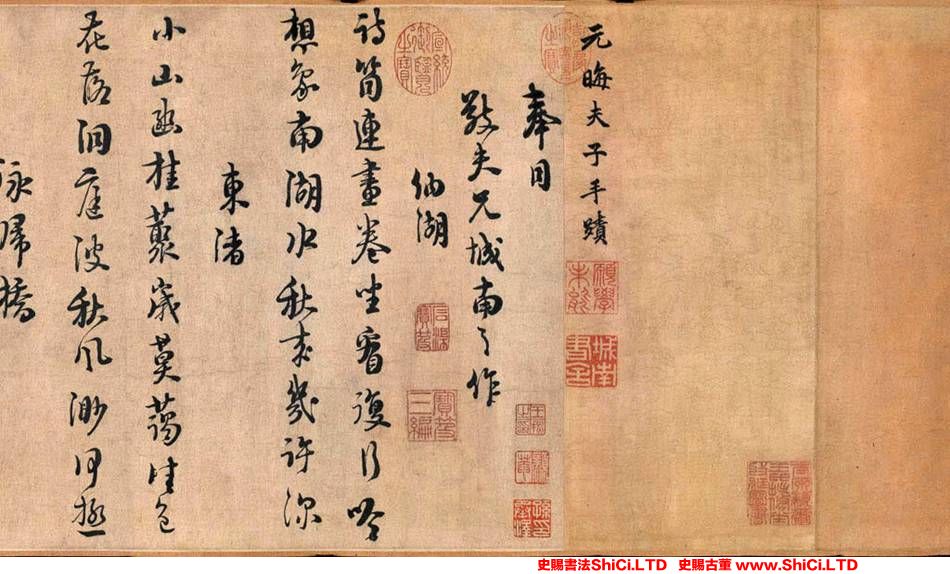 元晦夫子手蹟
願學未能
城南書舍
奉同
敬夫兄城南之作
納湖
宣統御覽之寶
寶笈三編
詩筒連畫卷坐看復行吟
想象南湖水秋來幾許深
東渚
小山幽桂叢歲莫藹佳色
花落洞庭波秋風渺何極
詠歸橋
史賜書法ShiCi.LTD 史賜古董 www.ShiCi.LTD